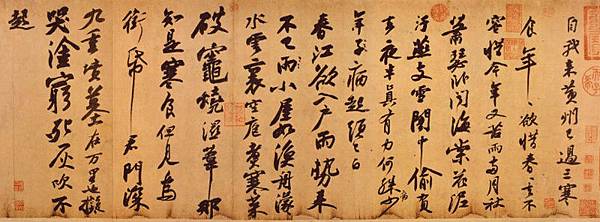 自我來黃州已過三寒
食年〻欲惜春春去不
容惜今年又苦雨兩月秋
蕭瑟卧聞海棠花泥
汙燕支雪闇中偷負
去夜半真有力何殊病少
年子病起頭已白
春江欲入戶雨勢來
不已雨小屋如漁舟濛〻
水雲裏空庖煮寒菜
破竈燒濕葦那
知是寒食但見烏
銜帋君門深
九重墳墓在万里也擬
哭塗窮死灰吹不
起